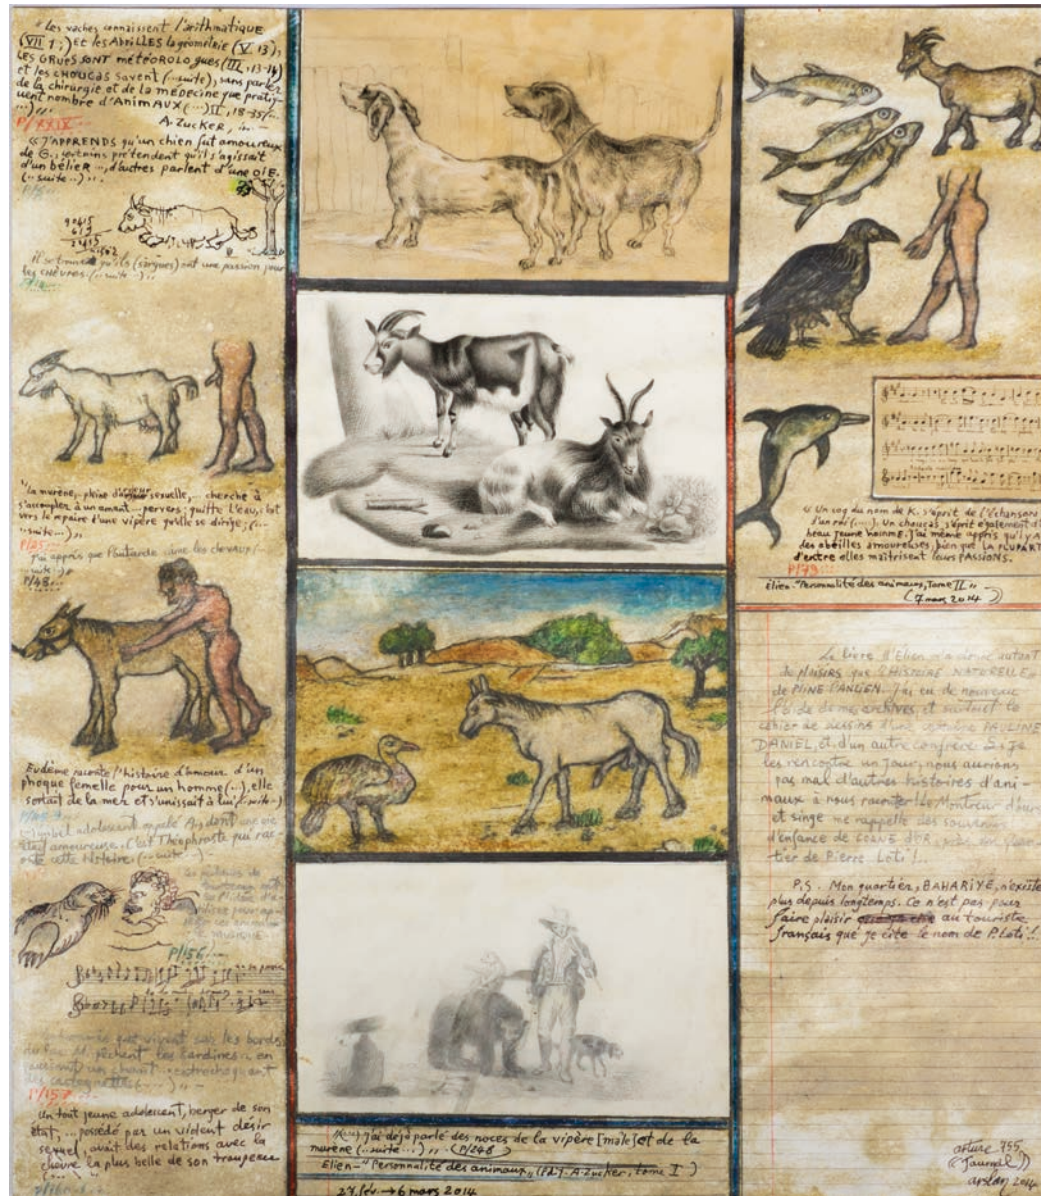 " Les vaches connaissent l'arithmatique
(VII 1;) Et les AbEiLLES la géométrie (V 13),
LES GRUES SONT météoroLogues (III, 13-14)
et les CHOUCAS savent (...suite), sans parler
de la chirurgie et de la médecine que pratiq-
uent nombre d'AnimAUX (...) II, 18-35/...
...) "
P/XXIX...
A. Zucker, in. —
« J'APPRENDS qu'un chien fut amoureux
de G., certains prétendent qu'il s'agissait
d'un bélier..., d'autres parlent d'une OIE.
(..suite...) ".
il se trouve qu'ils (sargues) ont une passion pour
les chèvres (..suite...) "
"La murène, pleine d'ardeur sexuelle, ... cherche à
s'accoupler à un amant... pervers; quitte l'eau, c'est
vers le repaire d'une vipère qu'elle se dirige; (...
..suite...) "
J'ai appris que l'outarde aime les chevaux (..
suite..) "
P/48...
Eudème raconte l'histoire d'amour d'un
phoque femelle pour un homme (...), elle
sortait de la mer et s'unissait à lui (..suite..)
adolescent appelé dont une oie
était amoureuse. C'est Théophraste qui rac-
onte cette histoire (..suite...)
P/156....
qui vivent sur les bords
du pêchent les sardines en
un chant entrechoquant
des castagnettes (....) " —
P/157...
Un tout jeune adolescent, berger de son
état, ... possédé par un violent désir
sexuel, avait des relations avec la
chèvre la plus belle de son troupeau
J'ai déjà parlé des noces de la vipère [mâle] et de la
murène (..suite...) " (P/248
Elien — "Personnalité des animaux" (A. Zucker, tome I)
27. fév. → 6 mars 2014
« Un coq du nom de K. s'éprit de l'échanson
d'un roi (....). Un choucas s'éprit également d'
beau jeune homme. J'ai même appris qu'il y a
des abeilles amoureuses, bien que LA PLUPART
d'entre elles maîtrisent leurs PASSIONS.
P/79...
Elien — "Personnalité des animaux, Tome II "
(7 mars 2014)
Le livre d'Elien m'a donné autant
de plaisirs que l'HISTOIRE NATURELLE
de PLINE l'ANCIEN. J'ai eu de nouveau
l'aide de mes archives, et surtout le
cahier de dessins d'une certaine PAULINE
DANIEL, et d'un autre confrère. Si je
les rencontre un jour, nous aurions
pas mal d'autres histoires d'ani-
maux à nous raconter! Le Montreur d'ours
et singe me rappelle des souvenirs
d'enfance de CORNE D'OR, quar-
tier de Pierre Loti!..
P.S. Mon quartier, BAHARİYE, n'existe
plus depuis longtemps. Ce n'est pas pour
faire plaisir au touriste
français que je cite le nom de P. Loti!.
arture 755
(Journal)
arslan 2014